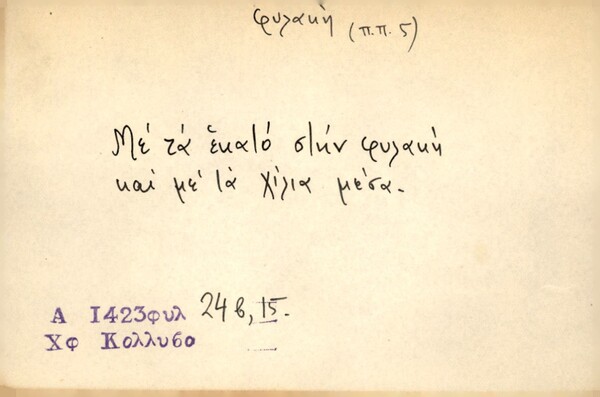 φυλακὴ (π.π. 5)
Μὲ τὰ ἑκατὸ στὴν φυλακὴ
καὶ μὲ τὰ χίλια μέσα.
Α 1423φυλ 24β, 15.
Χφ Κολλυβο